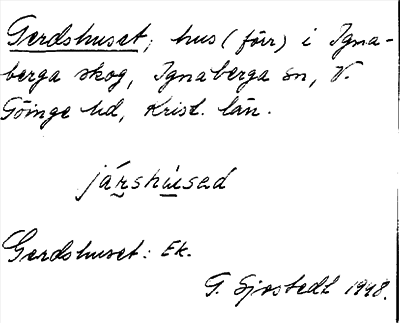 Gerdshuset, hus (förr) i Igna-
berga skog, Ignaberga sn, V.
Göinge hd, Krist. län.
járshúsəd
Gerdshuset: Ek.
G. Sjöstedt 1948.